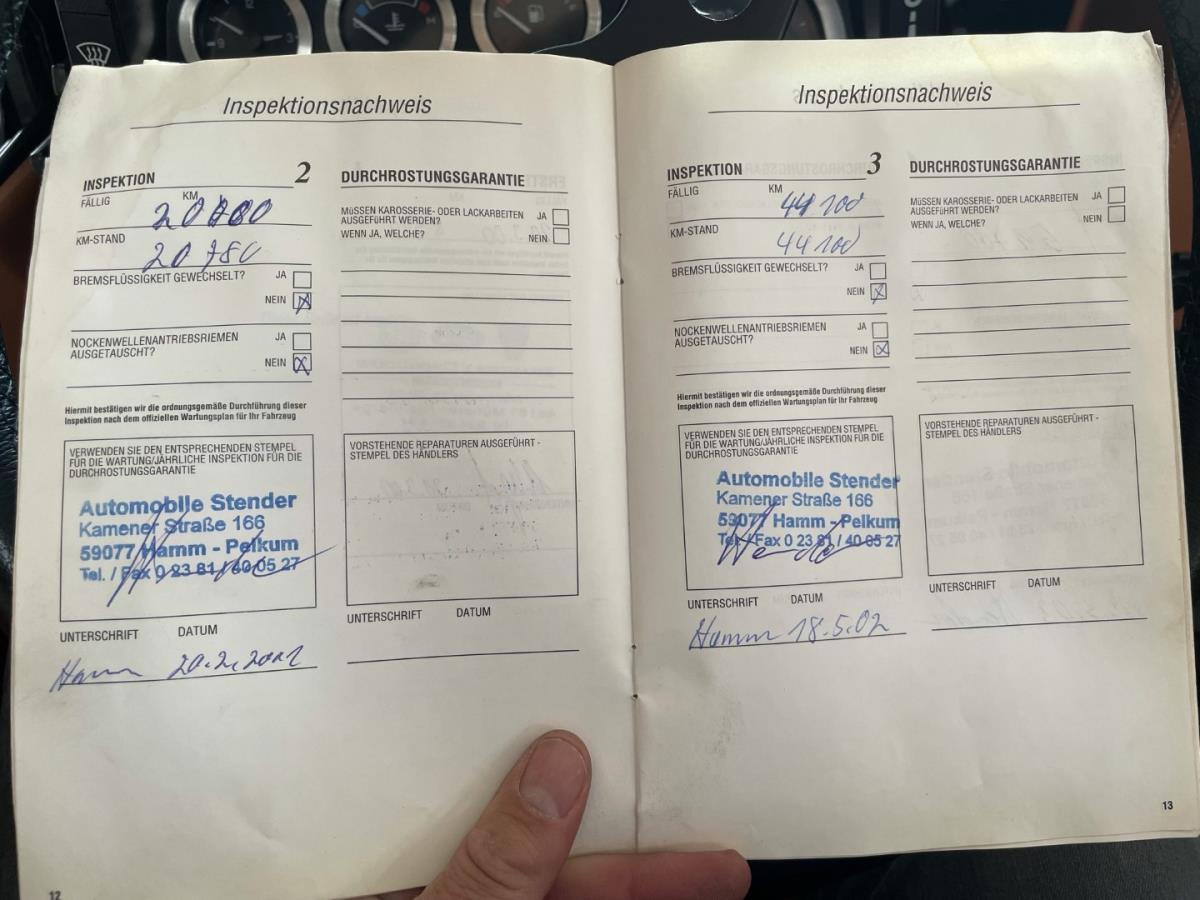 Inspektionsnachweis
INSPEKTION 2
FÄLLIG KM
KM-STAND
20 780
BREMSFLÜSSIGKEIT GEWECHSELT? JA
NEIN
NOCKENWELLENANTRIEBSRIEMEN JA
AUSGETAUSCHT?
NEIN
Hiermit bestätigen wir die ordnungsgemäße Durchführung dieser
Inspektion nach dem offiziellen Wartungsplan für Ihr Fahrzeug
VERWENDEN SIE DEN ENTSPRECHENDEN STEMPEL
FÜR DIE WARTUNG/JÄHRLICHE INSPEKTION FÜR DIE
DURCHROSTUNGSGARANTIE
Automobile Stender
Kamener Straße 166
59077 Hamm - Pelkum
Tel. / Fax 0 23 81 / 40 05 27
UNTERSCHRIFT DATUM
Hamm 20.2.2001
DURCHROSTUNGSGARANTIE
MÜSSEN KAROSSERIE- ODER LACKARBEITEN JA
AUSGEFÜHRT WERDEN?
WENN JA, WELCHE? NEIN
VORSTEHENDE REPARATUREN AUSGEFÜHRT -
STEMPEL DES HÄNDLERS
UNTERSCHRIFT DATUM
12
Inspektionsnachweis
INSPEKTION 3
FÄLLIG KM
44 100
KM-STAND
44 100
BREMSFLÜSSIGKEIT GEWECHSELT? JA
NEIN
NOCKENWELLENANTRIEBSRIEMEN JA
AUSGETAUSCHT?
NEIN
Hiermit bestätigen wir die ordnungsgemäße Durchführung dieser
Inspektion nach dem offiziellen Wartungsplan für Ihr Fahrzeug
VERWENDEN SIE DEN ENTSPRECHENDEN STEMPEL
FÜR DIE WARTUNG/JÄHRLICHE INSPEKTION FÜR DIE
DURCHROSTUNGSGARANTIE
Automobile Stender
Kamener Straße 166
59077 Hamm - Pelkum
Tel. / Fax 0 23 81 / 40 05 27
UNTERSCHRIFT DATUM
Hamm 18.5.02
DURCHROSTUNGSGARANTIE
MÜSSEN KAROSSERIE- ODER LACKARBEITEN JA
AUSGEFÜHRT WERDEN?
NEIN
WENN JA, WELCHE?
VORSTEHENDE REPARATUREN AUSGEFÜHRT -
STEMPEL DES HÄNDLERS
UNTERSCHRIFT DATUM
13